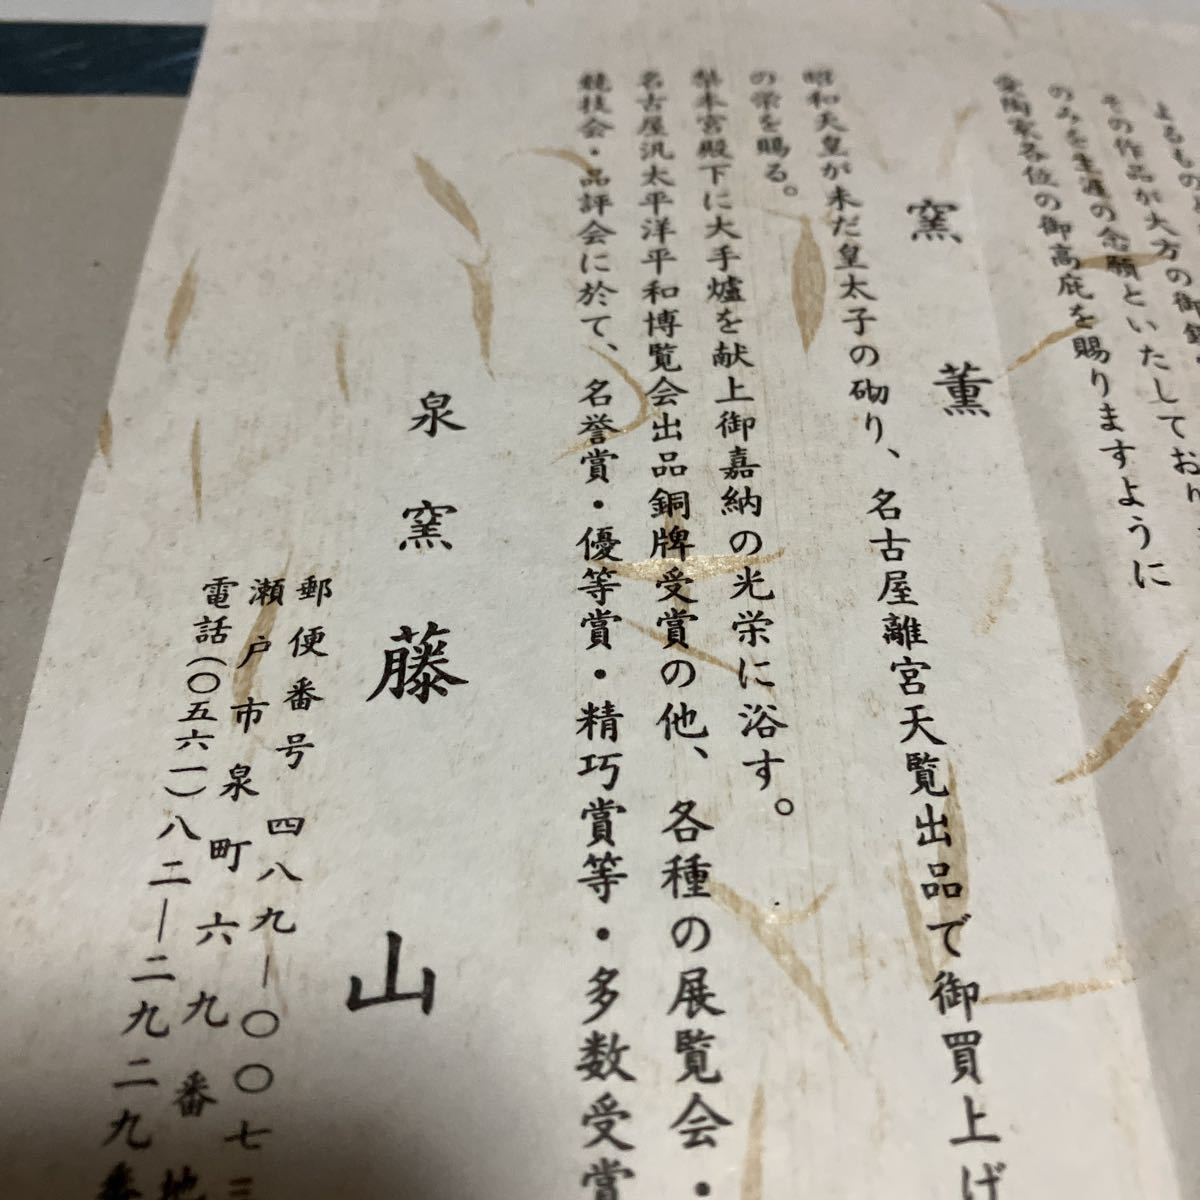 よるもの
その作品が大方の御
のみを生涯の念願といたしており
愛陶家各位の御高庇を賜りますように
窯薫
昭和天皇が未だ皇太子の砌り、名古屋離宮天覧出品で御買上げ
の栄を賜る。
梨本宮殿下に大手爐を献上御嘉納の光栄に浴す。
名古屋汎太平洋平和博覧会出品銅牌受賞の他、各種の展覧会・
競技会・品評会に於て、名誉賞・優等賞・精巧賞等・多数受賞
泉窯 藤山
郵便番号 四八九―〇〇七三
瀬戸市泉町六九番地
電話(〇五六一)八二―二九二九番